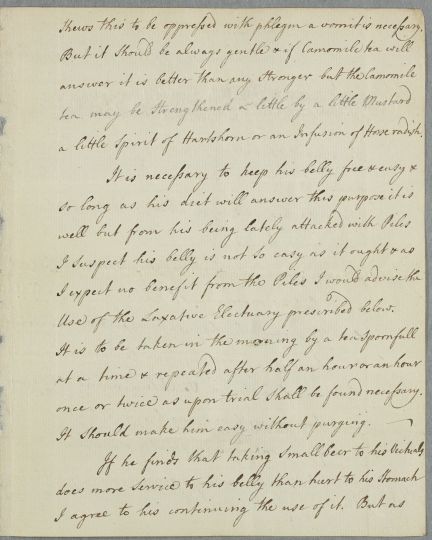 shews this to be oppressed with phlegm a vomit is necessary.
But it should be always gentle & if Camomile tea will
answer it is better than any stronger but the Camomile
tea may be strengthened a little by a little Mustard
a little spirit of Hartshorn or an Infusion of Horseradish.
It is necessary to keep his belly free & easy &
so long as his diet will answer this purpose it is
well but from his being lately attacked with Piles
I suspect his belly is not so easy as it ought & as
I expect no benefit from the Piles I would advise the
Use of the Laxative Electuary prescribed below.
It is to be taken in the morning by a teaspoonfull
at a time & repeated after half an hour or an hour
once or twice as upon trial shall be found necessary.
It should make him easy without purging.
If he finds that taking Small beer to his Victuals
does more Service to his belly than hurt to his Stomach
I agree to his continuing the use of it. But as